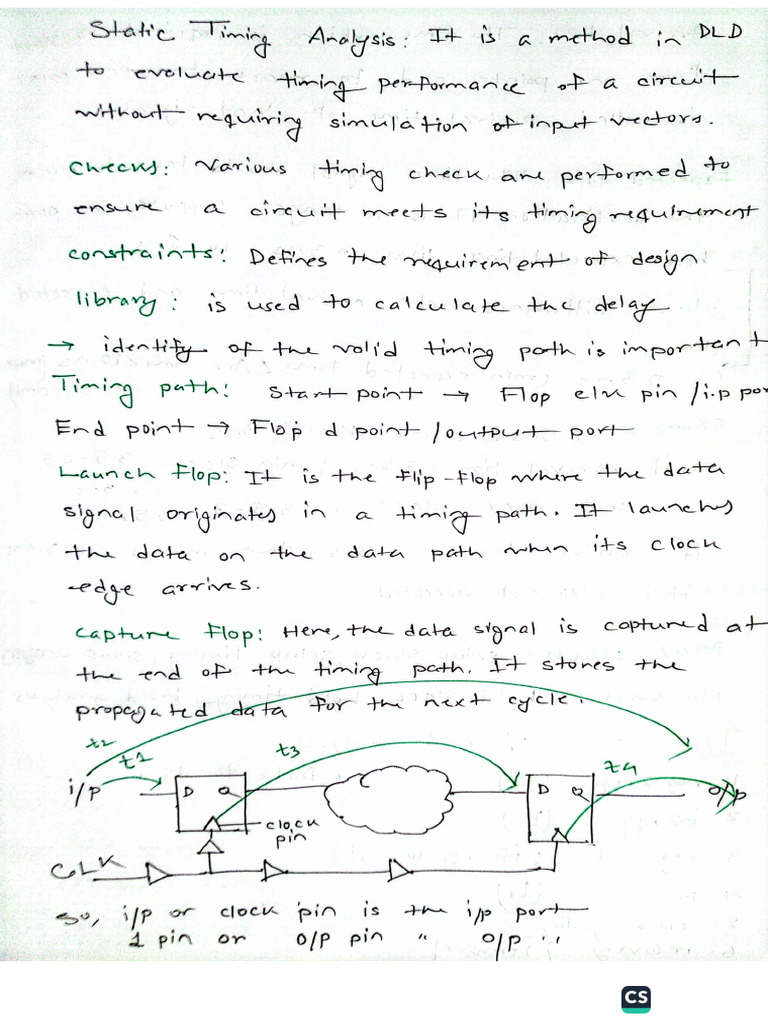 Static Timing Analysis: It is a method in DLD
to evaluate timing performance of a circuit
without requiring simulation of input vectors.
Checks: Various timing check are performed to
ensure a circuit meets its timing requirement
constraints: Defines the requirement of design
library: is used to calculate the delay
→ identify of the valid timing path is important
Timing path: Start point → Flop clk pin /i.p por
End point → Flop d point /output port
Launch Flop: It is the flip-flop where the data
signal originates in a timing path. It launches
the data on the data path when its clock
edge arrives.
Capture Flop: Here, the data signal is captured at
the end of the timing path. It stores the
propagated data for the next cycle.
t2
t1
t3
t4
i/p D Q D Q o/p
clock
pin
CLK
so, i/p or clock pin is the i/p port
1 pin or o/p pin " o/p "
CS